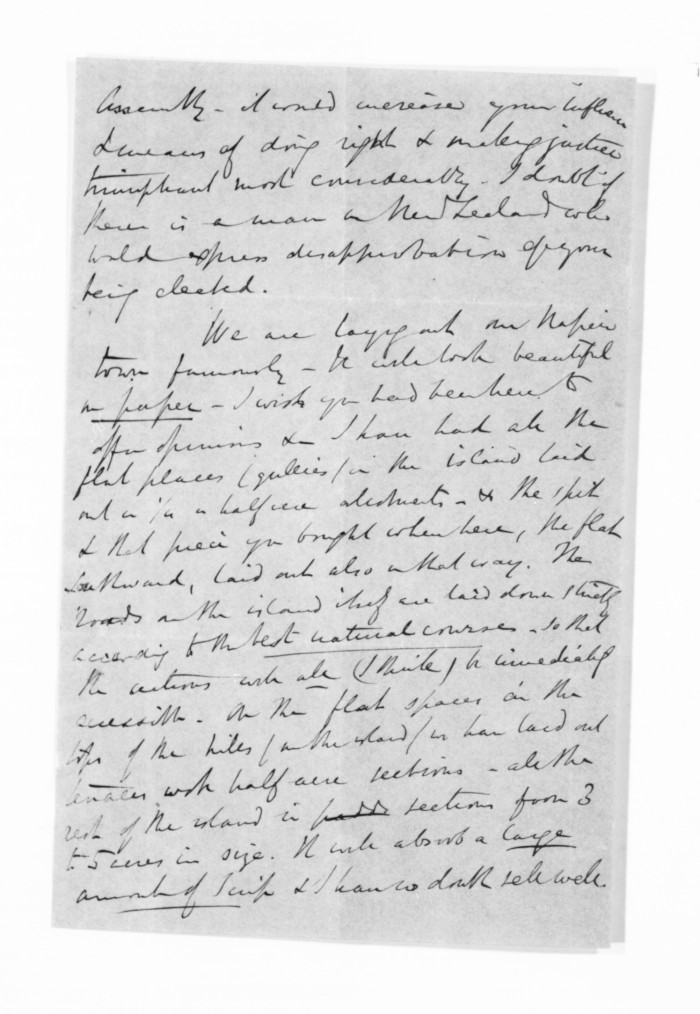 Assembly - it would increase your influence
& means of doing right & making justice
triumphant most considerably - I doubt if
there is a man in New Zealand who
would express disapprobation of your
being elected.
We are laying out our Napier
town famously - It will look beautiful
on paper - I wish you had been here to
offer opinions &c I have had all the
flat places (gullies) in the island laid
out in 1/4 or half acre allotments - & the spit
& that piece you bought when here, the flat
southward, laid out also in that way. The
roads on the island itself are laid down strictly
according to the best natural courses - so that
the sections will all (I think) be immediately
accessible. On the flat spaces on the
tops of the hills (on the island) we have laid out
terraces with half acre sections - all the
rest of the island in sections from 3
to 5 acres in size. It will absorb a large
amount of Scrip & I have no doubt sell well.